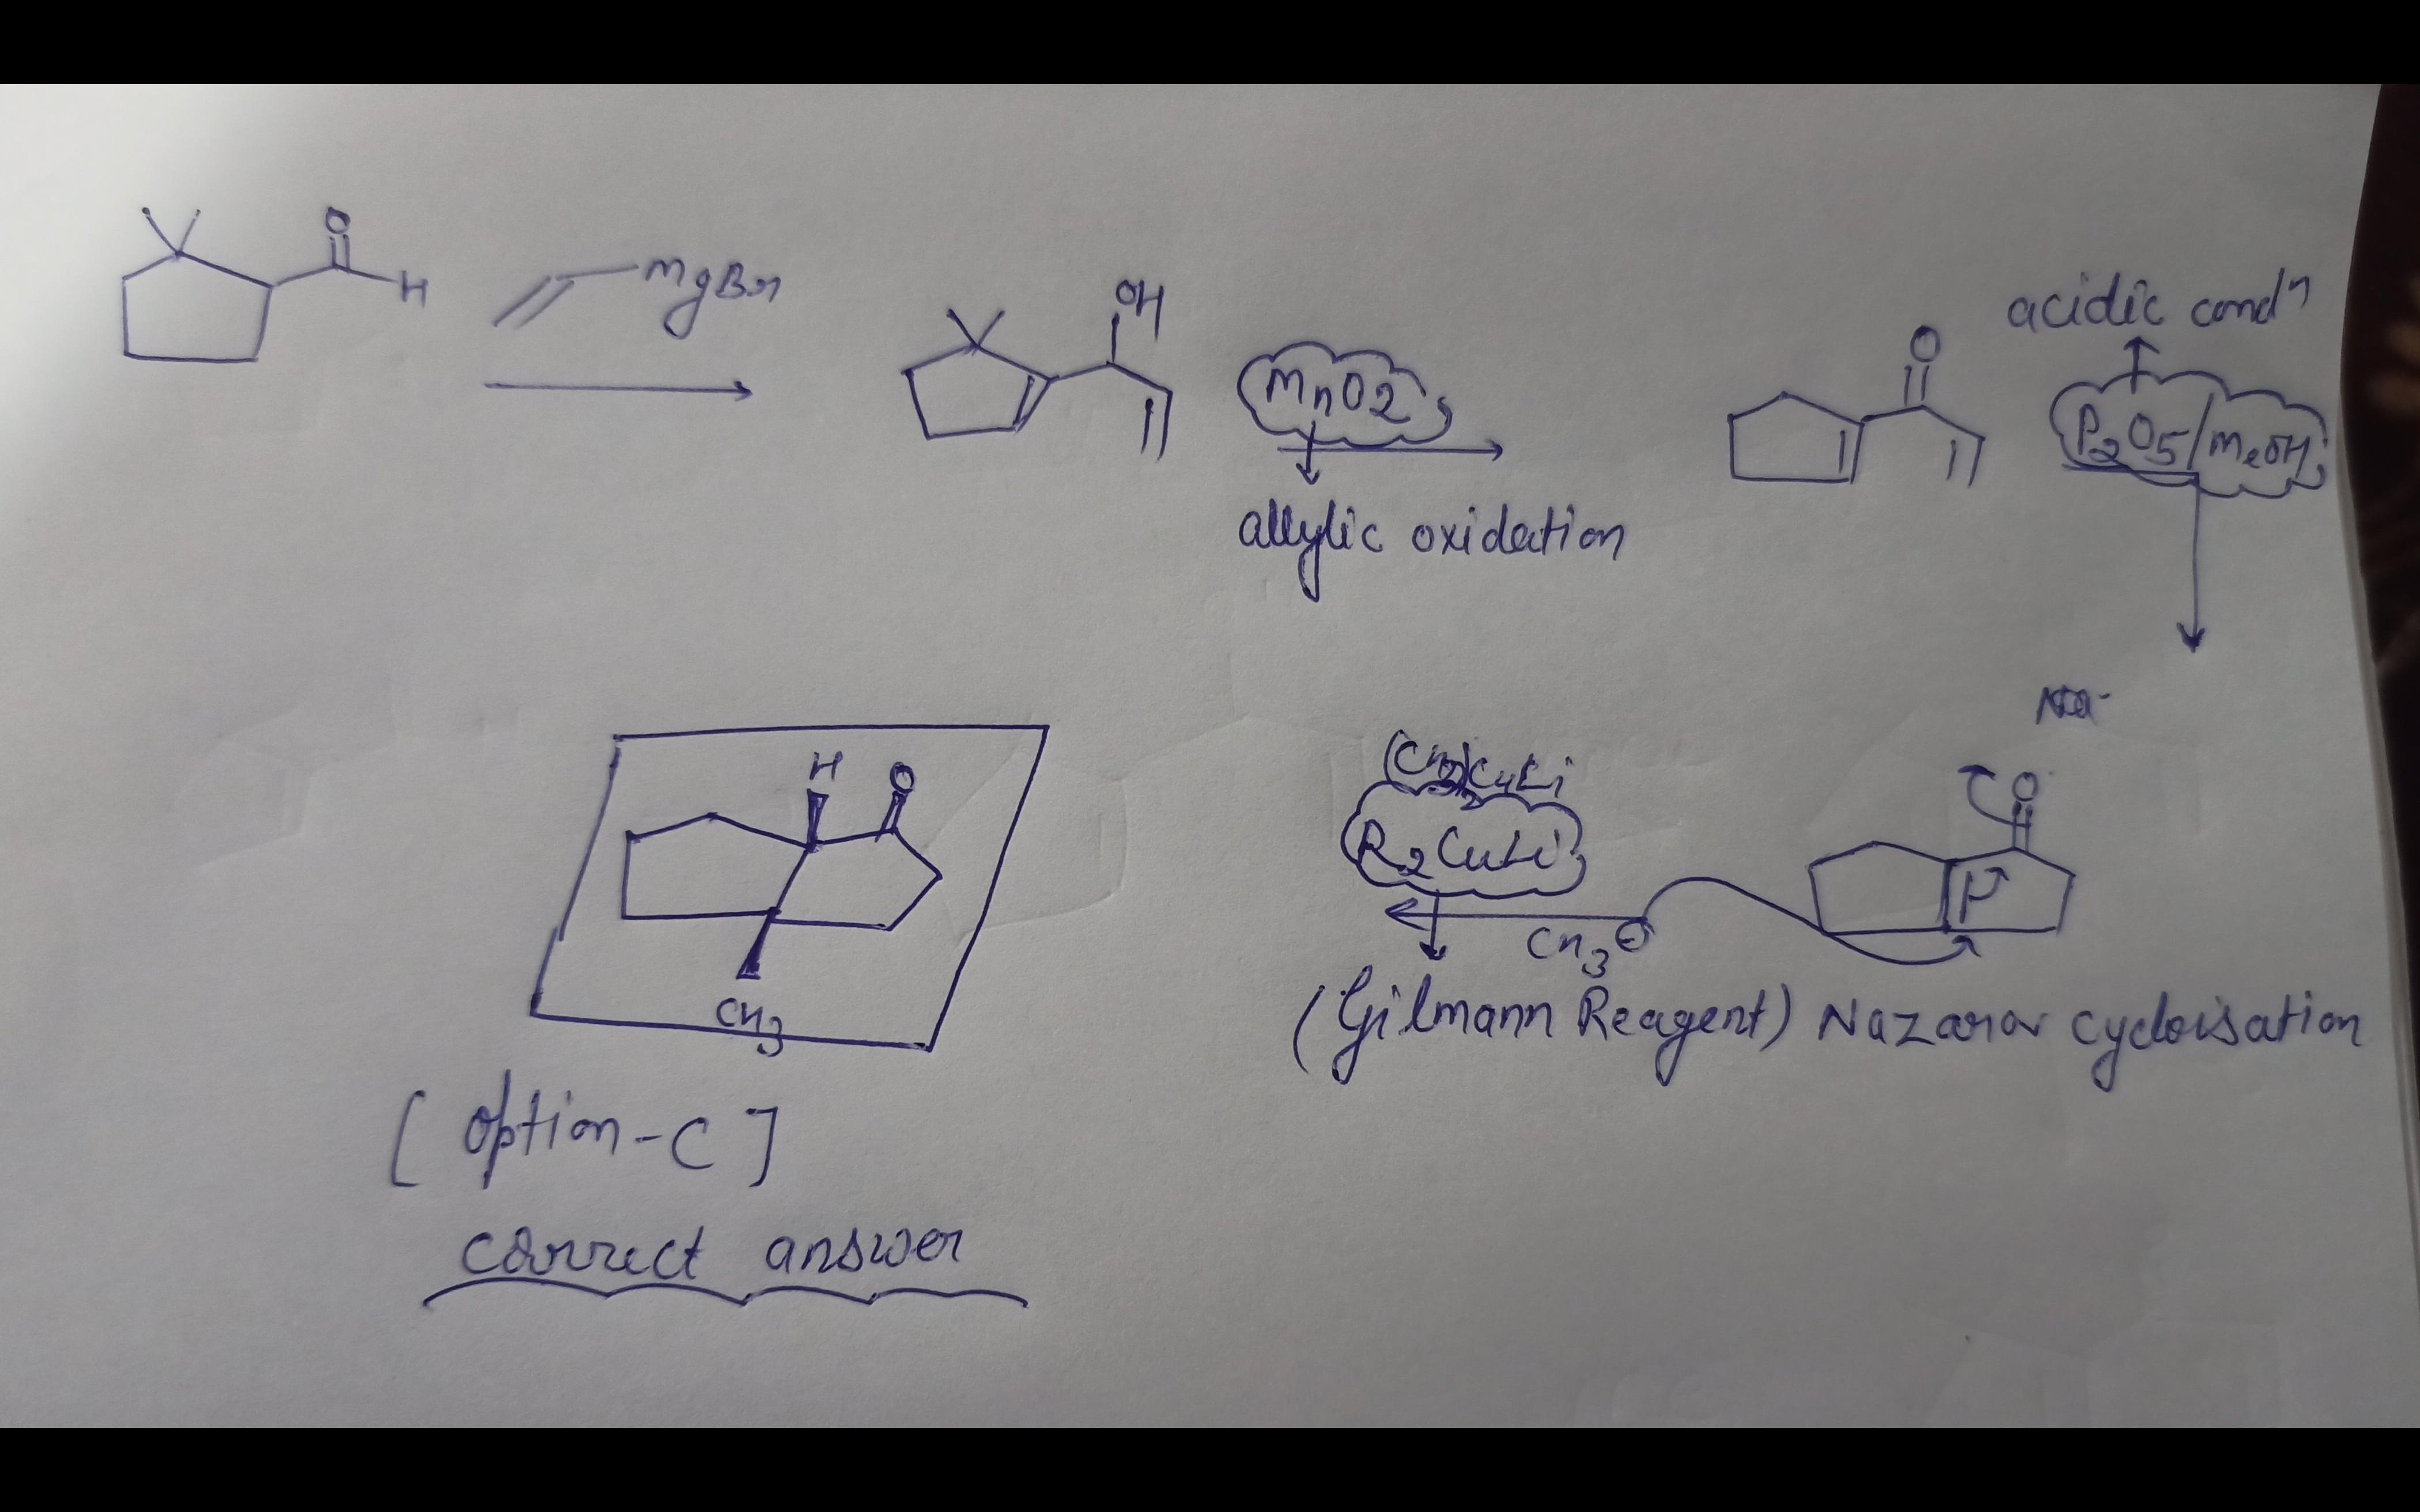 O
H
MgBr
OH
MnO2,
allylic oxidation
O
acidic condn
P2O5/MeOH,
H
O
CH3
(CH3)2CuLi
R2CuLi,
CH3⊖
(Gilmann Reagent)
O
Nazarov cycloisation
[option-C]
correct answer